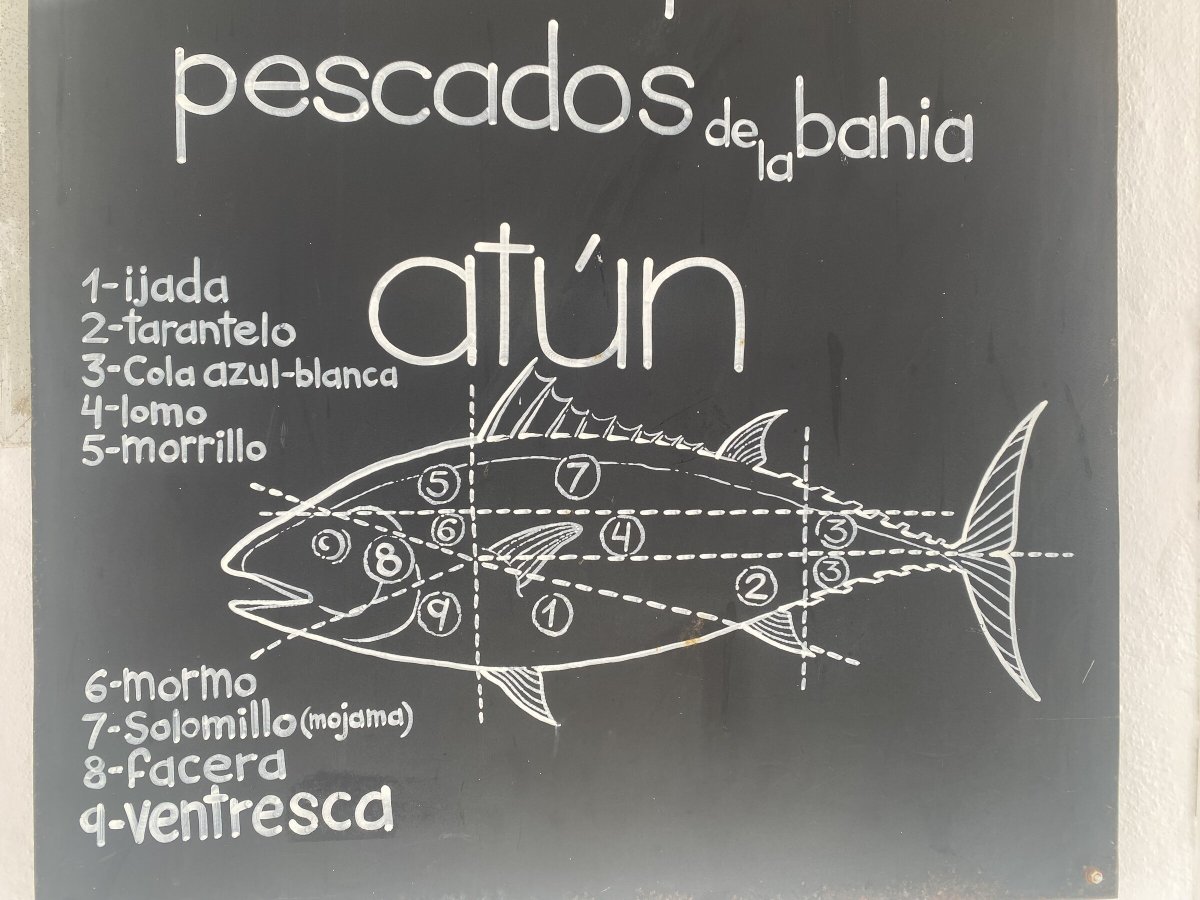 pescados de la bahia
atún
1-ijada
2-tarantelo
3-Cola azul-blanca
4-lomo
5-morrillo
5
7
6
4
3
8
3
2
9
1
6-mormo
7-Solomillo (mojama)
8-facera
9-ventresca